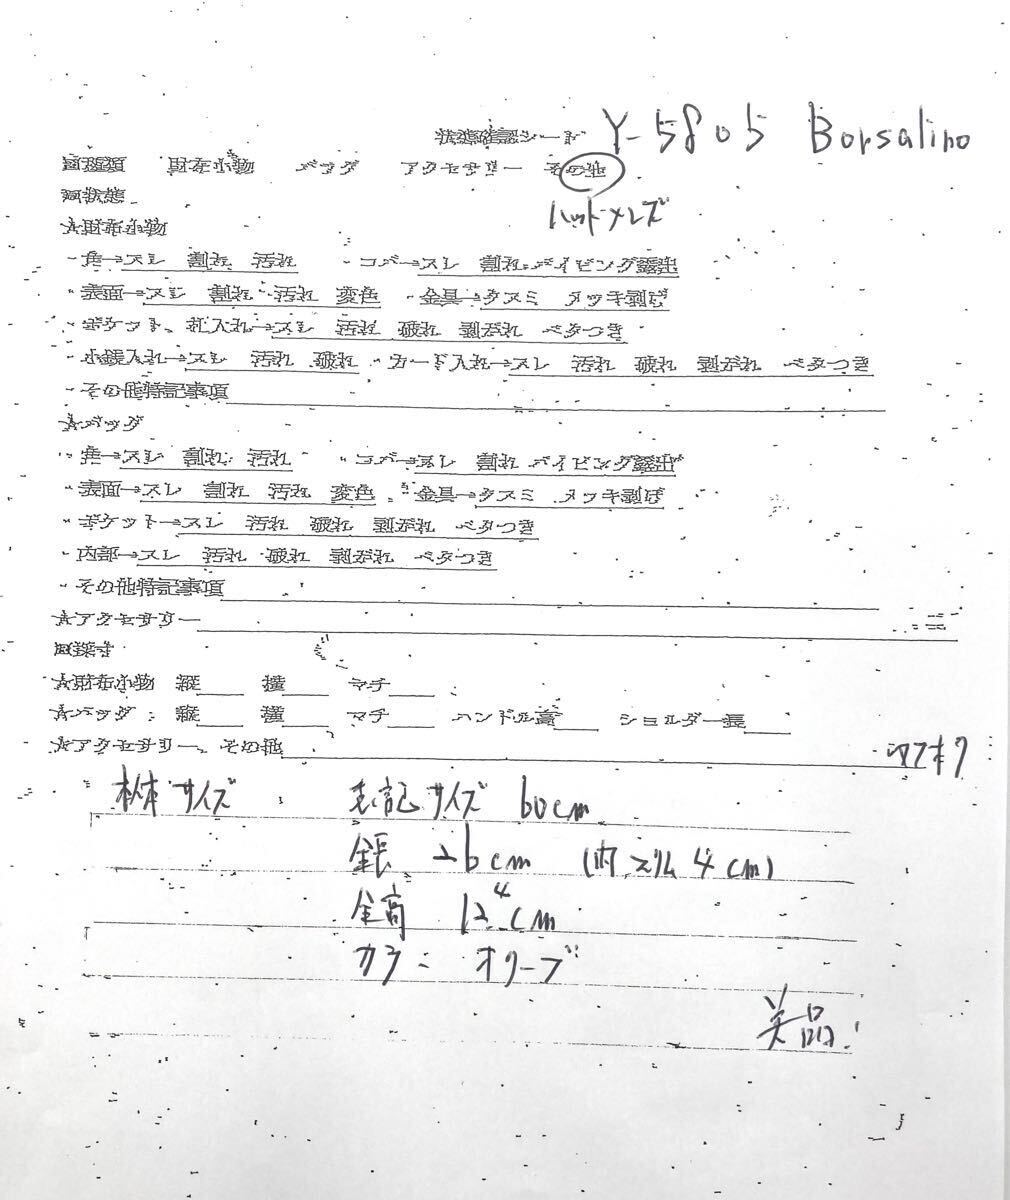 状態確認シート Y-5805 Borsalino
財布小物 バッグ アクセサリー その他
ハット メンズ
状態
★財布小物
・角→スレ 割れ 汚れ ・コバ→スレ 割れ パイピング露出
・表面→スレ 割れ 汚れ 変色 ・金具→クスミ メッキ剥げ
・ポケット、札入れ→スレ 汚れ 破れ 剥がれ ベタつき
・小銭入れ→スレ 汚れ 破れ ・カード入れ→スレ 汚れ 破れ 剥がれ ベタつき
・その他特記事項
★バッグ
・角→スレ 割れ 汚れ ・コバ→スレ 割れ パイピング露出
・表面→スレ 割れ 汚れ 変色 ・金具→クスミ メッキ剥げ
・ポケット→スレ 汚れ 破れ 剥がれ ベタつき
・内部→スレ 汚れ 破れ 剥がれ ベタつき
・その他特記事項
★アクセサリー
採寸
★財布小物 縦 横 マチ
★バッグ 縦 横 マチ ハンドル高 ショルダー長
★アクセサリー、その他
ヤフオク
サイズ 表記サイズ 60cm
全長 26cm (内 4cm)
全高 12.4cm
カラー オリーブ
美品!